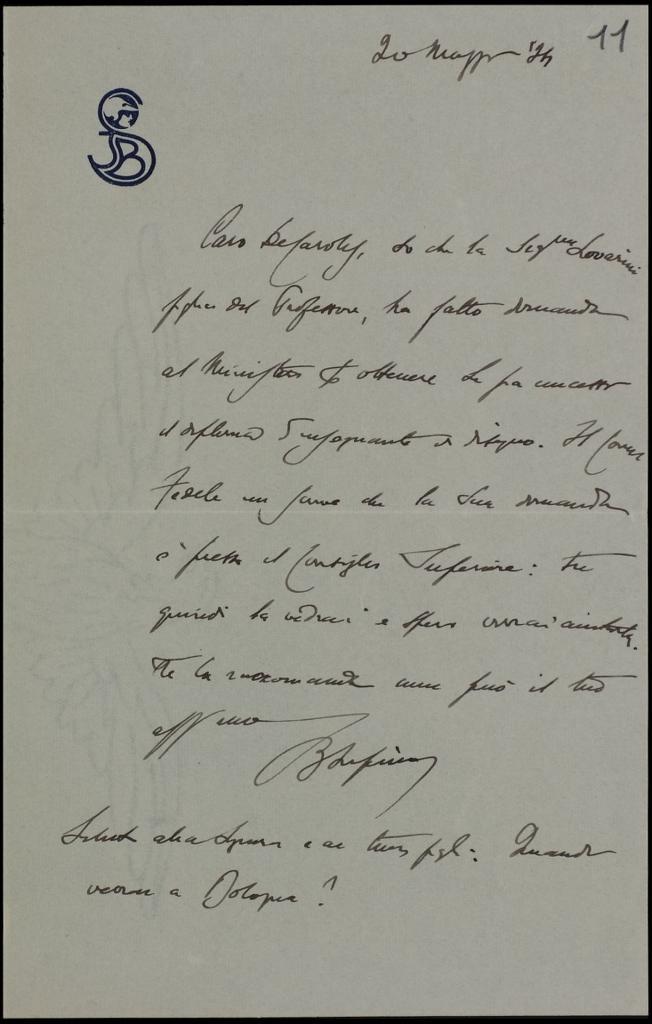 11
20 Maggio '24
SB
Caro De Carolis, so che la Sig.na Lovarini
figlia del Professore, ha fatto domanda
al Ministero di ottenere
il diploma d'insegnante di disegno. Il Comm
Fedele mi scrive che la sua domanda
è presso il Consiglio Superiore: tu
quindi la vedrai e spero vorrai aiutarla.
Te la raccomanda come può il tuo
aff.mo
BSupino
Saluti alla Signora e ai tuoi figli. Quando
verrai a Bologna?